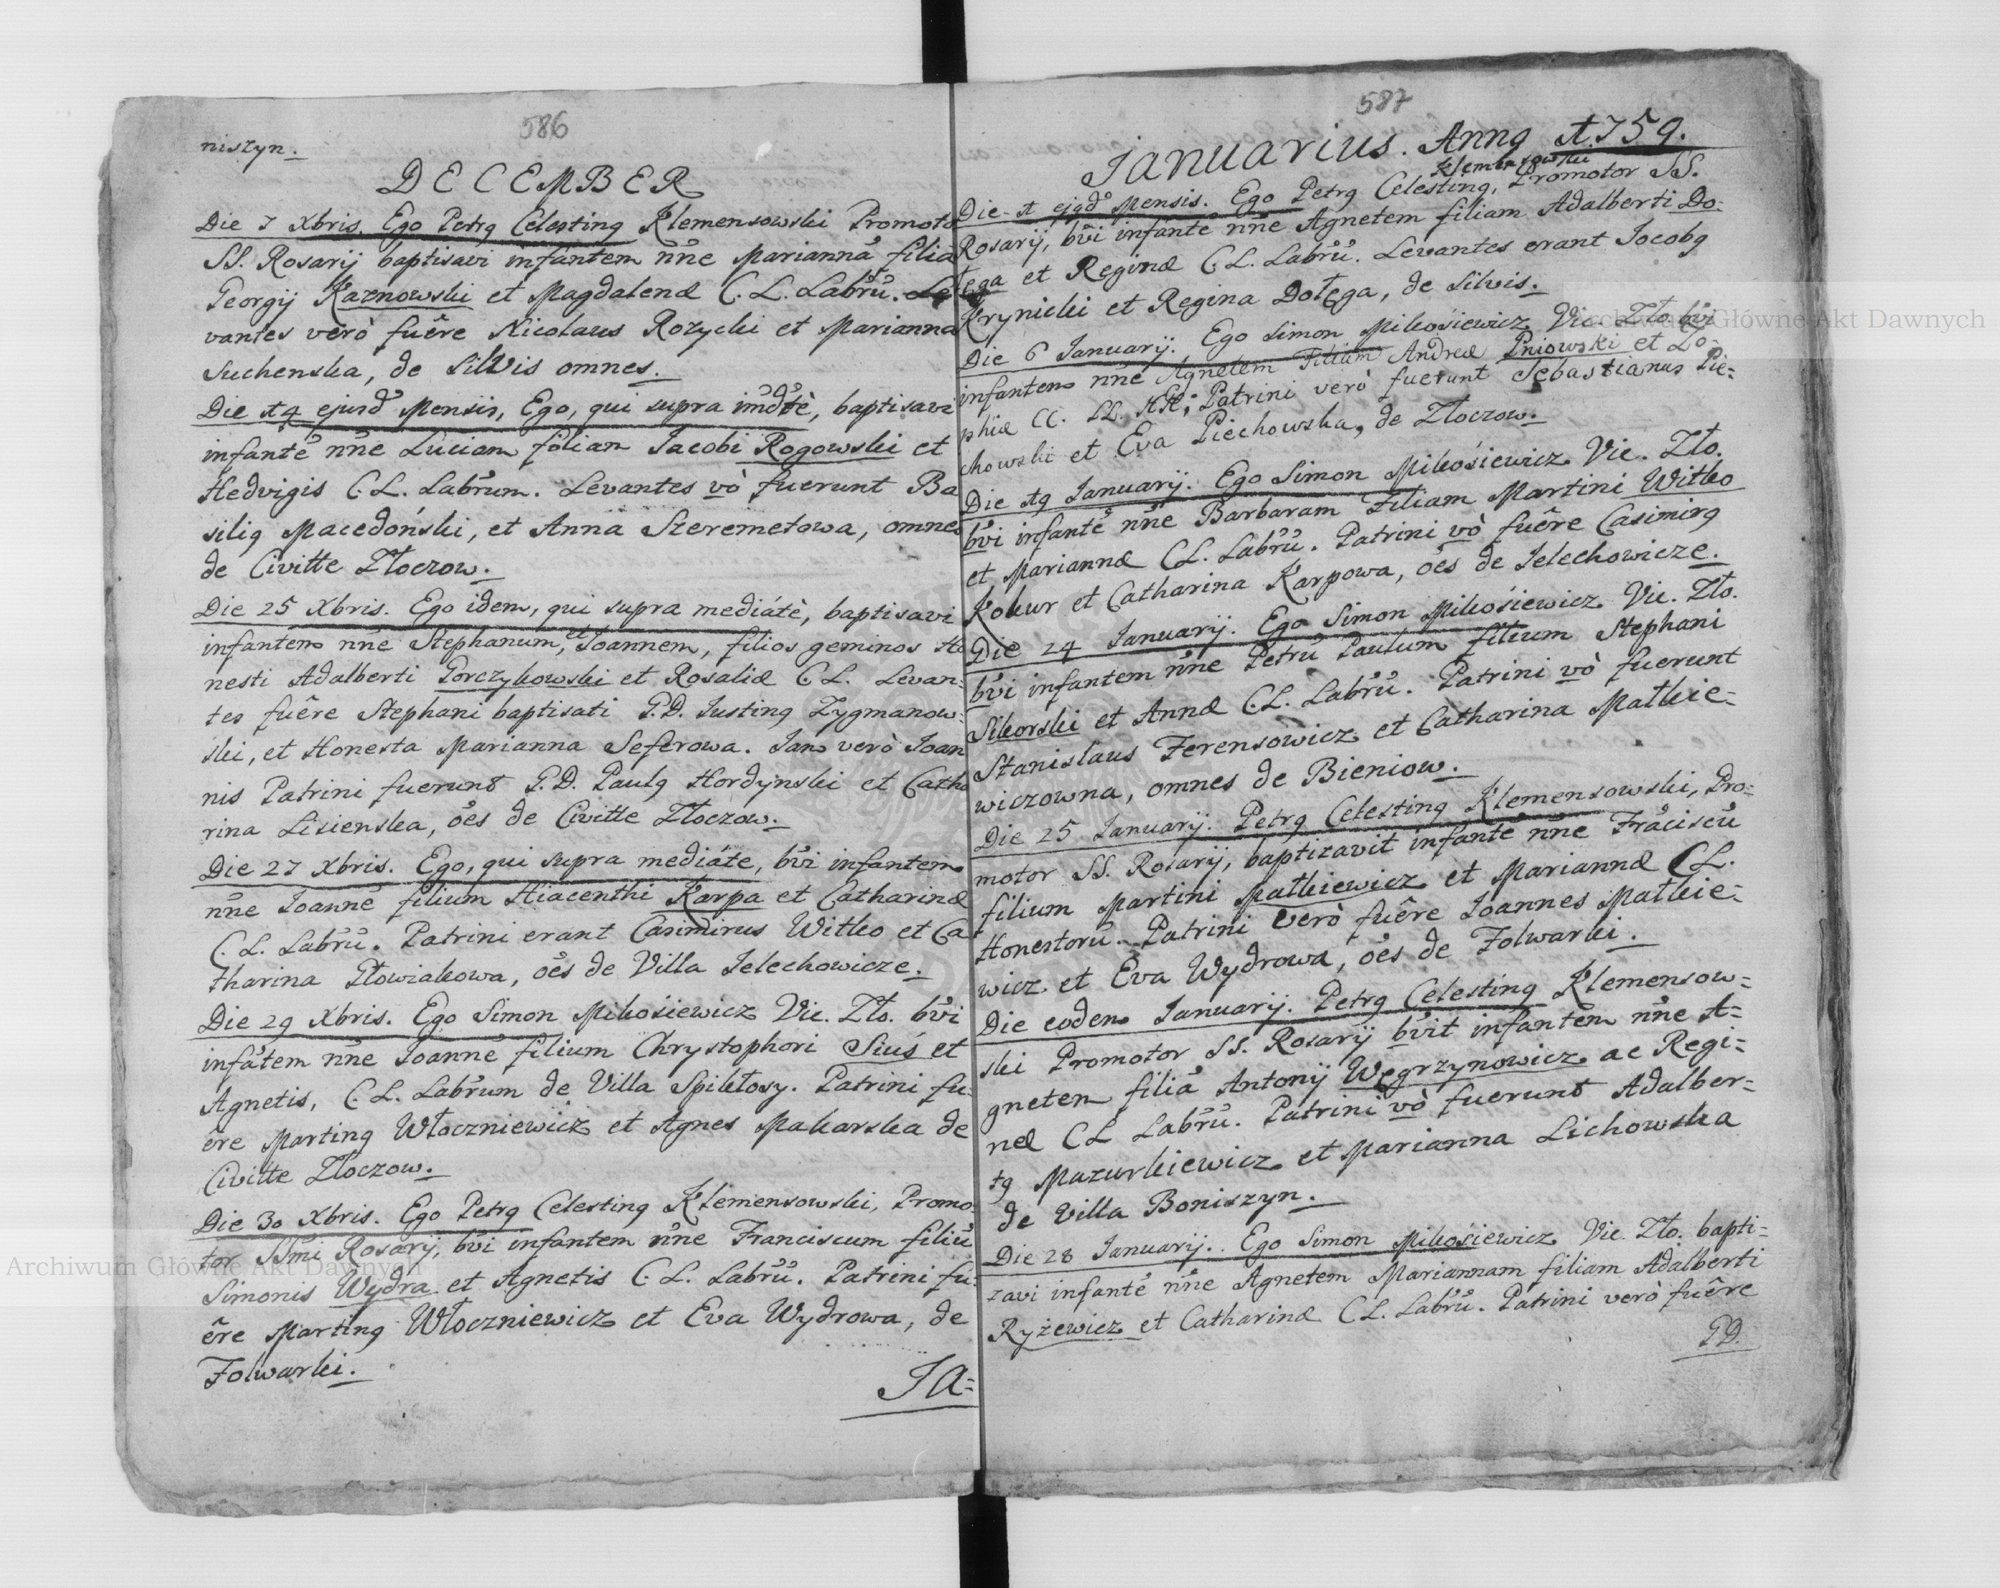 586
niszyn.
DECEMBER
Die 7 Xbris. Ego Petrq Celestinq Klemensowski Promoto
SS. Rosarij baptisavi infantem nn̄e Mariannā filiā
Georgij Kaznowski et Magdalenæ C. L. Labrū. Le
vantes verò fuêre Nicolaus Rozycki et Marianna
Suchenska, de Silvis omnes.
Die 14 ejusd Mensis, Ego, qui supra imdtè, baptisavi
infantē nn̄e Luciam filiam Iacobi Rogowski et
Hedvigis C. L. Labrum. Levantes vò fuerunt Ba
siliq Macedoński, et Anna Szeremetowa, omnes
de Civitte Złoczow.
Die 25 Xbris. Ego idem, qui supra mediátè, baptisavi
infantem nn̄e Stephanum, et Joannem, filios geminos Ho
nesti Adalberti Gorczykowski et Rosaliæ C. L. Levan-
tes fuêre Stephani baptisati G.D. Iustinq Zygmanow-
ski, et Honesta Marianna Seferowa. Iam verò Ioan
nis Patrini fuerunt G.D. Paulq Hordynski et Catha
rina Lisienska, oēs de Civitte Złoczow.
Die 27 Xbris. Ego, qui supra mediáte, bvi infantem
nn̄e Ioannē filium Hiacenthi Karpa et Catharinæ
C. L. Labrū. Patrini erant Casimirus Witko et Ca
tharina Głowiakowa, oēs de Villa Ielechowicze.
Die 29 Xbris. Ego Simon Mikośiewicz Vic. Zło. bvi
infātem nn̄e Ioannē filium Chrystophori Siuś et
Agnetis, C. L. Labrum de Villa Spikłosy. Patrini fu-
êre Martinq Włoczniewicz et Agnes Makarska de
Civitte Złoczow.
Die 30 Xbris. Ego Petrq Celestinq Klemensowski, Promo-
tor SSmi Rosarij, bvi infantem nn̄e Franciscum filiū
Simonis Wydra et Agnetis C. L. Labrū. Patrini fu-
êre Martinq Włoczniewicz et Eva Wydrowa, de
Folwarki.
IA=
587
Ianuarius. Anno 1759.
Klemensowski
Die 1 ejqd Mensis. Ego Petrq Celestinq, Promotor SS.
Rosarij, bvi infantē nn̄e Agnetem filiam Adalberti Do-
łęga et Reginæ C. L. Labrū. Levantes erant Jacobq
Krynicki et Regina Dołęga, de Silvis.
Die 6 Ianuarij. Ego Simon Mikośiewicz Vic. Zło. bvi
infantem nn̄e Agnetem Filiam Andreæ Pniowski et So-
phiæ CC. LL. HH; Patrini verò fuerunt Sebastianus Pie-
chowski et Eva Piechowska, de Złoczow.
Die 19 Ianuarij. Ego Simon Mikośiewicz Vic. Zło.
bvi infantē nn̄e Barbaram Filiam Martini Witko
et Mariannæ C L. Labrū. Patrini vò fuêre Casimirq
Kokur et Catharina Karpowa, oēs de Ielechowicze.
Die 24 Ianuarij. Ego Simon Mikośiewicz Vic. Zło.
bvi infantem nn̄e Petrū Paulum filium Stephani
Sikorski et Annæ C.L. Labrū. Patrini vò fuerunt
Stanislaus Ferensowicz et Catharina Matkie-
wiczowna, omnes de Bieniow.
Die 25 Ianuarij. Petrq Celestinq Klemensowski, Pro-
motor SS. Rosarij, baptizavit infantē nn̄e Frāciscū
filium Martini Matkiewicz et Mariannæ C L.
Honestorū. Patrini verò fuêre Ioannes Matkie-
wicz et Eva Wydrowa, oēs de Folwarki.
Die eodem Ianuarij. Petrq Celestinq Klemensow=
ski Promotor SS. Rosarij bvit infantem nn̄e A=
gnetem filiā Antonij Węgrzynowicz ac Regi=
næ C L Labrū. Patrini vò fuerunt Adalber=
tq Mazurkiewicz et Marianna Lichowska
de Villa Boniszyn.
Die 28 Ianuarij. Ego Simon Mikośiewicz Vic. Zło. bapti=
zavi infantē nn̄e Agnetem Mariannam filiam Adalberti
Ryżewicz et Catharinæ C L. Labrū. Patrini verò fuêre
GD.
Archiwum Główne Akt Dawnych
Archiwum Główne Akt Dawnych